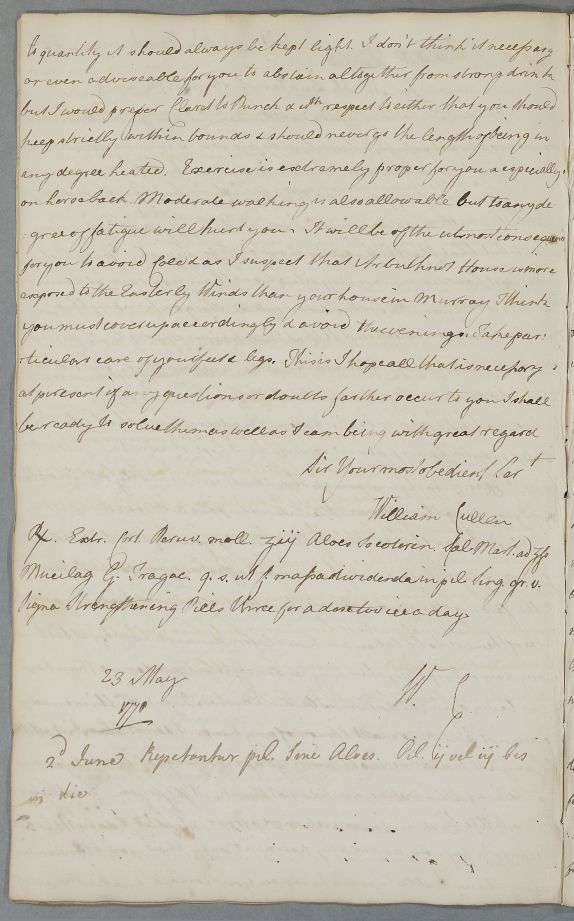 to quantity it should always be kept light. I don't think it necessary
or even adviseable for you to abstain altogether from strong drink
but I would prefer Claret to Punch & with respect to either that you should
keep strictly within bounds & should never go the length of being in
any degree heated. Exercise is extremely proper for you & especially
on horseback. Moderate walking is also allowable but to any de
:gree of fatigue will hurt you. It will be of the utmost consequence
for you to avoid Cold & as I suspect that Arbuthnot House is more
exposed to the Easterly Winds than your house in Murray I think
you must cover up accordingly & avoid the evenings. Take par:
:ticular care of your feet & legs. This is I hope all that is necessary
at present if any questions or doubts farther occur to you I shall
be ready to solve them as well as I can being with great regard
Sir Your most obedient Ser^t
William Cullen
℞. Extr. Cort. Peruv. moll. ʒiij Aloes Socotorin. Sal. Mart. ad ʒſs
Mucilag G. Tragac. q. s. ut f. massa dividenda in pil. sing. gr. v.
Signa Strengthening Pills three for a dose twice a day.
23 May
1770
W. C
2^d June Repetantur pil. Sine Aloes. Pil. ij vel iij bis
in die